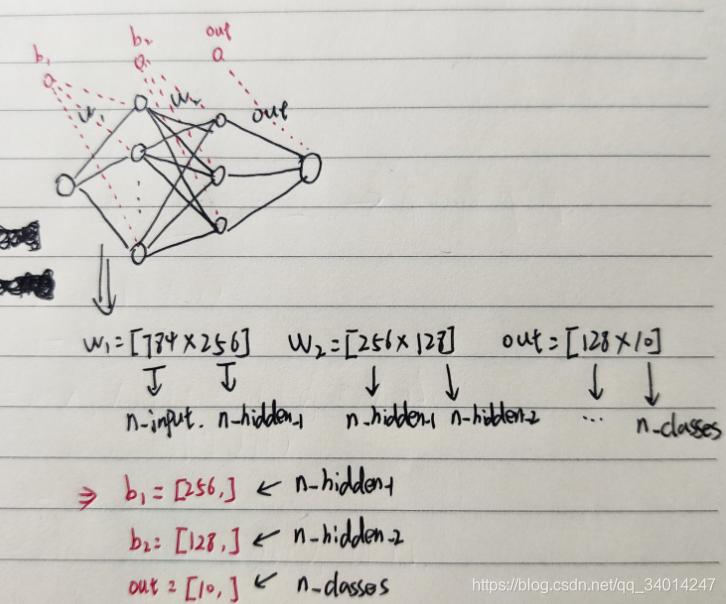 b₁ b₂ out
w₁ w₂ out
w₁=[784×256] w₂=[256×128] out=[128×10]
n-input. n-hidden-1 n-hidden-1 n-hidden-2 ... n-classes
⇒ b₁=[256,] ← n-hidden-1
b₂=[128,] ← n-hidden-2
out=[10,] ← n-classes
https://blog.csdn.net/qq_34014247